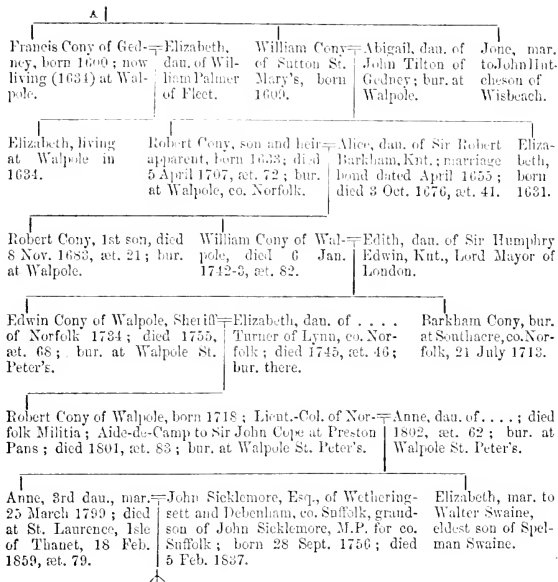 A
Francis Cony of Ged-
ney, born 1600; now
living (1634) at Wal-
pole.
Elizabeth,
dau. of Wil-
liam Palmer
of Fleet.
William Cony
of Sutton St.
Mary's, born
1609.
Abigail, dau. of
John Tilton of
Gedney; bur. at
Walpole.
Jone, mar.
to John Hut-
cheson of
Wisbeach.
Elizabeth, living
at Walpole in
1634.
Robert Cony, son and heir
apparent, born 1633; died
5 April 1707, æt. 72; bur.
at Walpole, co. Norfolk.
Alice, dau. of Sir Robert
Barkham, Knt.; marriage
bond dated April 1655;
died 3 Oct. 1676, æt. 41.
Eliza-
beth,
born
1631.
Robert Cony, 1st son, died
8 Nov. 1683, æt. 21; bur.
at Walpole.
William Cony of Wal-
pole, died 6 Jan.
1742-3, æt. 82.
Edith, dau. of Sir Humphry
Edwin, Knt., Lord Mayor of
London.
Edwin Cony of Walpole, Sheriff
of Norfolk 1734; died 1755,
æt. 68; bur. at Walpole St.
Peter's.
Elizabeth, dau. of . . . .
Turner of Lynn, co. Nor-
folk; died 1745, æt. 46;
bur. there.
Barkham Cony, bur.
at Southacre, co. Nor-
folk, 21 July 1713.
Robert Cony of Walpole, born 1718; Lieut.-Col. of Nor-
folk Militia; Aide-de-Camp to Sir John Cope at Preston
Pans; died 1801, æt. 83; bur. at Walpole St. Peter's.
Anne, dau. of . . . .; died
1802, æt. 62; bur. at
Walpole St. Peter's.
Anne, 3rd dau., mar.
25 March 1799; died
at St. Laurence, Isle
of Thanet, 18 Feb.
1859, æt. 79.
John Sicklemore, Esq., of Wethering-
sett and Debenham, co. Suffolk, grand-
son of John Sicklemore, M.P. for co.
Suffolk; born 28 Sept. 1756; died
5 Feb. 1837.
Elizabeth, mar. to
Walter Swaine,
eldest son of Spel-
man Swaine.